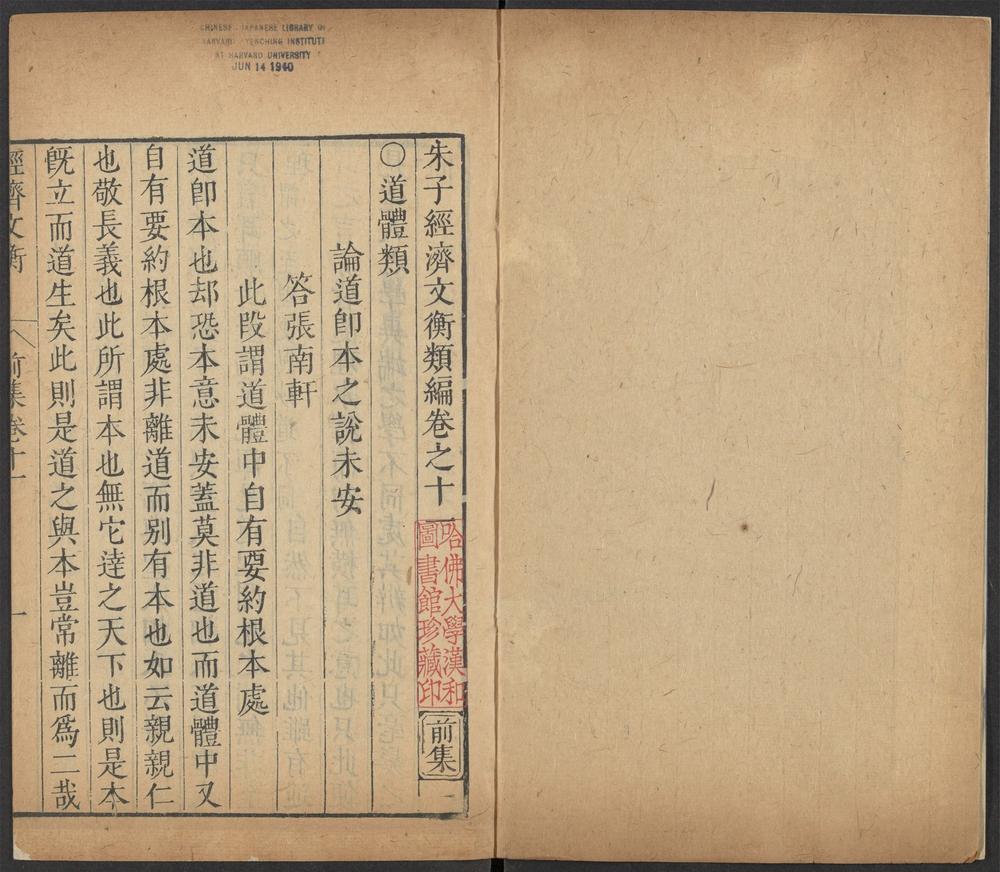 CHINESE-JAPANESE LIBRARY OF
HARVARD-YENCHING INSTITUTE
AT HARVARD UNIVERSITY
JUN 14 1940
朱子經濟文衡類編卷之十一
哈佛大學漢和
圖書館珍藏印
前集
○道體類
論道卽本之說未安
答張南軒
此段謂道體中自有要約根本處
道卽本也却恐本意未安蓋莫非道也而道體中又
自有要約根本處非離道而别有本也如云親親仁
也敬長義也此所謂本也無它達之天下也則是本
旣立而道生矣此則是道之與本豈常離而爲二哉
經濟文衡
前集卷十一
一